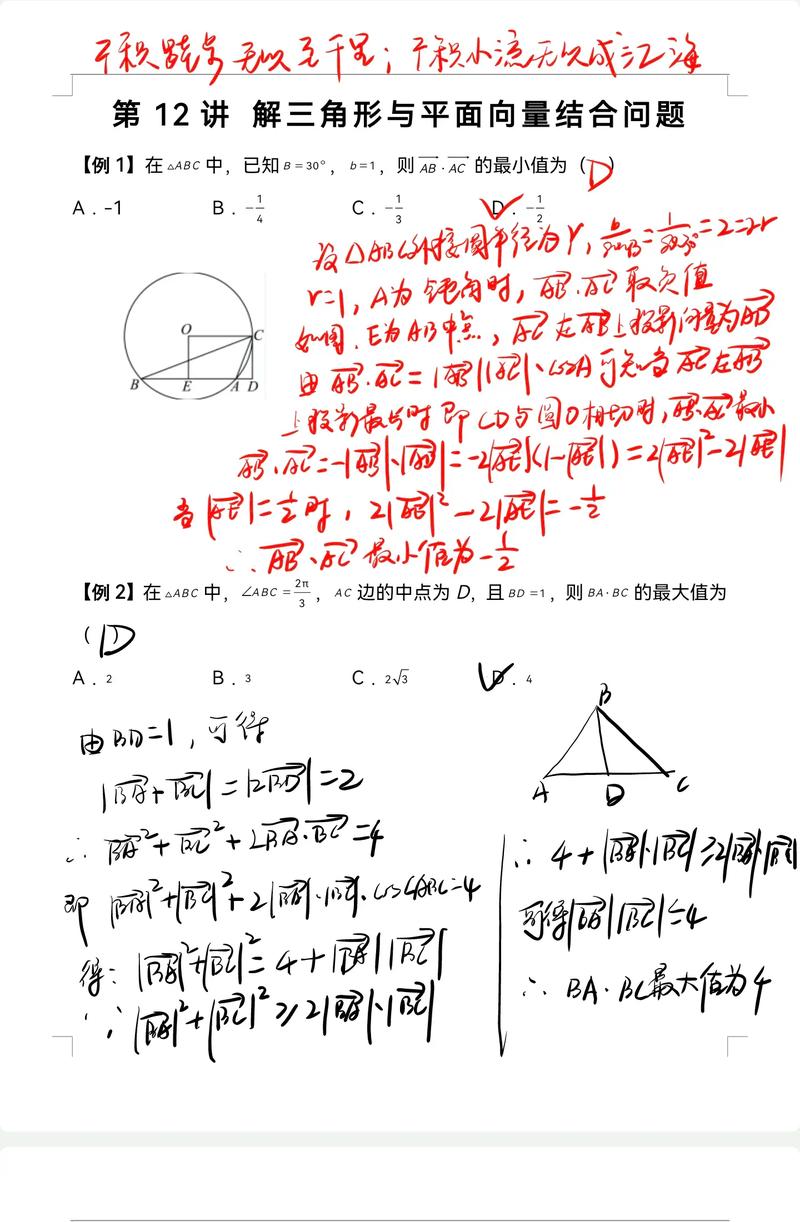 不积跬步无以至千里；不积小流无以成江海
第 12 讲 解三角形与平面向量结合问题
【例 1】在 △ABC 中，已知 B = 30°， b = 1，则 AB · AC 的最小值为（ D ）
A．-1 B．-1/4 C．-1/3 D．-1/2
设△ABC外接圆半径为r，b/sinB=1/sin30°=2=2r
r=1，A为钝角时，AB·AC取负值
如图，E为AB中点，AC在AB上投影向量为AD
由AB·AC=|AB||AC|·cosA可知当AC在AB
上投影最长时即CD与圆O相切时，AB·AC最小
AB·AC=-|AB|·|AD|=-2|AE|(1-|AE|)=2|AE|²-2|AE|
当|AE|=1/2时，2|AE|²-2|AE|=-1/2
∴AB·AC最小值为-1/2
O C
B E A D
【例 2】在 △ABC 中， ∠ABC = 2π/3， AC 边的中点为 D，且 BD = 1，则 BA · BC 的最大值为
（ D ）
A．2 B．3 C．2√3 D．4
由BD=1，可得
|BA+BC|=|2BD|=2
∴BA²+BC²+2BA·BC=4
即|BA|²+|BC|²+2|BA|·|BC|·cos∠ABC=4
得：|BA|²+|BC|²=4+|BA||BC|
∵|BA|²+|BC|²≥2|BA|·|BC|
B
A D C
∴4+|BA|·|BC|≥2|BA|·|BC|
可得|BA||BC|≤4
∴BA·BC最大值为4